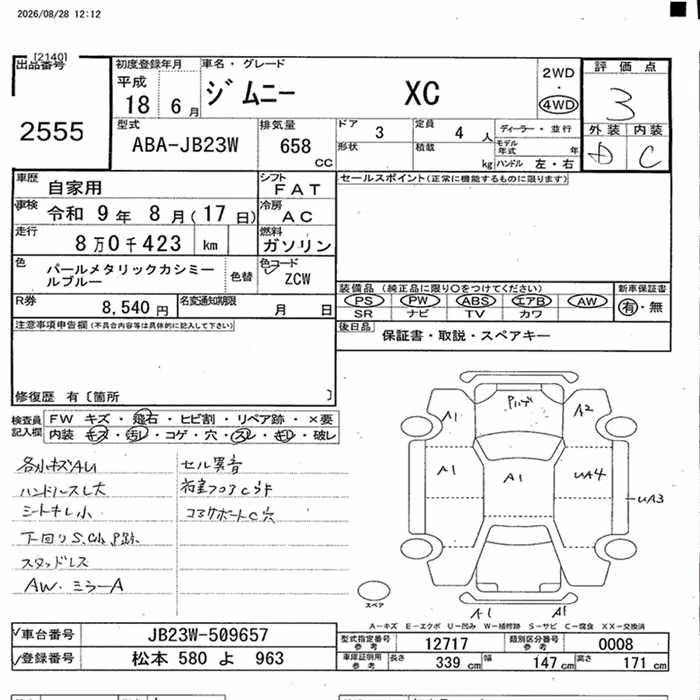 2026/08/28 12:12
[2140]
出品番号
2555
初度登録年月
平成
18 6月
車名・グレード
ジムニー XC
2WD
・
4WD
評価点
3
外装 内装
D C
型式
ABA-JB23W
排気量
658
CC
ドア
3
定員
4 人
形状
積載
kg
ディーラー・並行
モデル年式 年
ハンドル 左・右
車歴
自家用
シフト
FAT
車検
令和 9年 8月(17日)
冷房
AC
走行
8万0千423 km
燃料
ガソリン
色
パールメタリックカシミールブルー
色替
色コード
ZCW
R券
8,540円
名変通知期限
月 日
セールスポイント(正常に機能するものに限ります)
装備品(純正品に限り○をつけてください)
PS PW ABS エアB AW
SR ナビ TV カワ
新車保証書
有・無
後日品
保証書・取説・スペアキー
注意事項申告欄(不具合内容等は具体的に記入して下さい)
修復歴 有〔箇所 〕
検査員記入欄
FW キズ・飛石・ヒビ割・リペア跡・×要
内装 キズ・汚レ・コゲ・穴・スレ・キレ・破レ
各小キズAU
ハンドルスレ大
シートキレ小
下回りS.
スタッドレス
AW・ミラーA
セル異音
A1
A2
A1
A1
UA4
UA3
A1
A1
スペア
A-キズ E-エクボ U-凹み W-補修跡 S-サビ C-腐食 XX-交換済
車台番号
JB23W-509657
登録番号
松本 580 よ 963
型式指定番号
参考
12717
類別区分番号
参考
0008
車庫証明用
参考
長さ 339 cm
幅 147 cm
高さ 171 cm